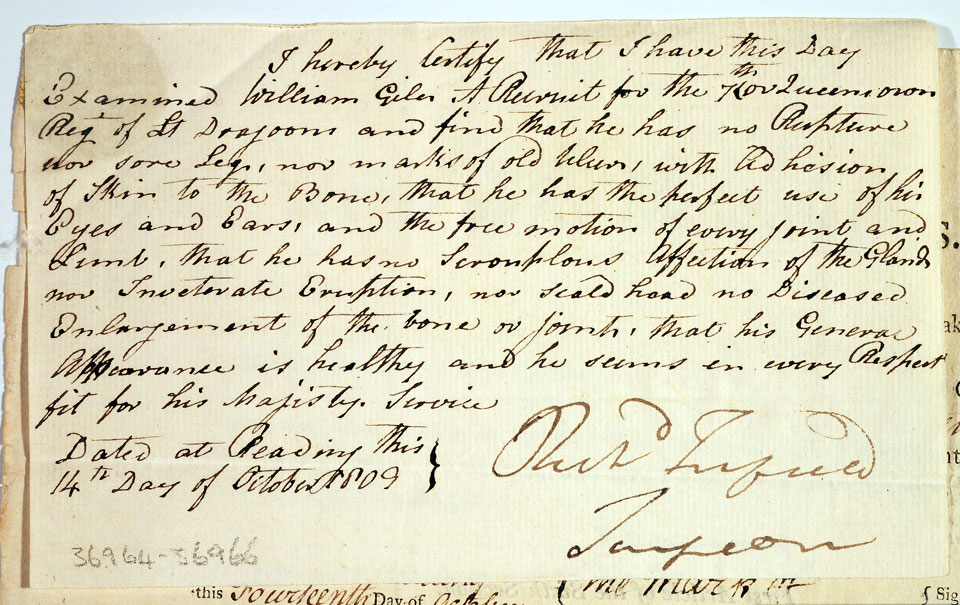 I hereby Certify that I have this Day
Examined William Giles A Recruit for the 7th or Queens own
Regt of Lt Dragoons and find that he has no Rupture
nor sore Legs, nor marks of old Ulcers, with Adhesion
of Skin to the Bone, that he has the perfect use of his
Eyes and Ears, and the free motion of every Joint and
Limb, that he has no Scrouplous Affection of the Glands
nor Inveterate Eruption, nor scald head no Diseased
Enlargement of the bone or joints, that his General
Appearance is healthy and he seems in every Respect
fit for his Majisty Service
Dated at Reading this
14th Day of October 1809
Richd
Surgeon
36964-36966
this Fourteenth Day of October
Sig
S.